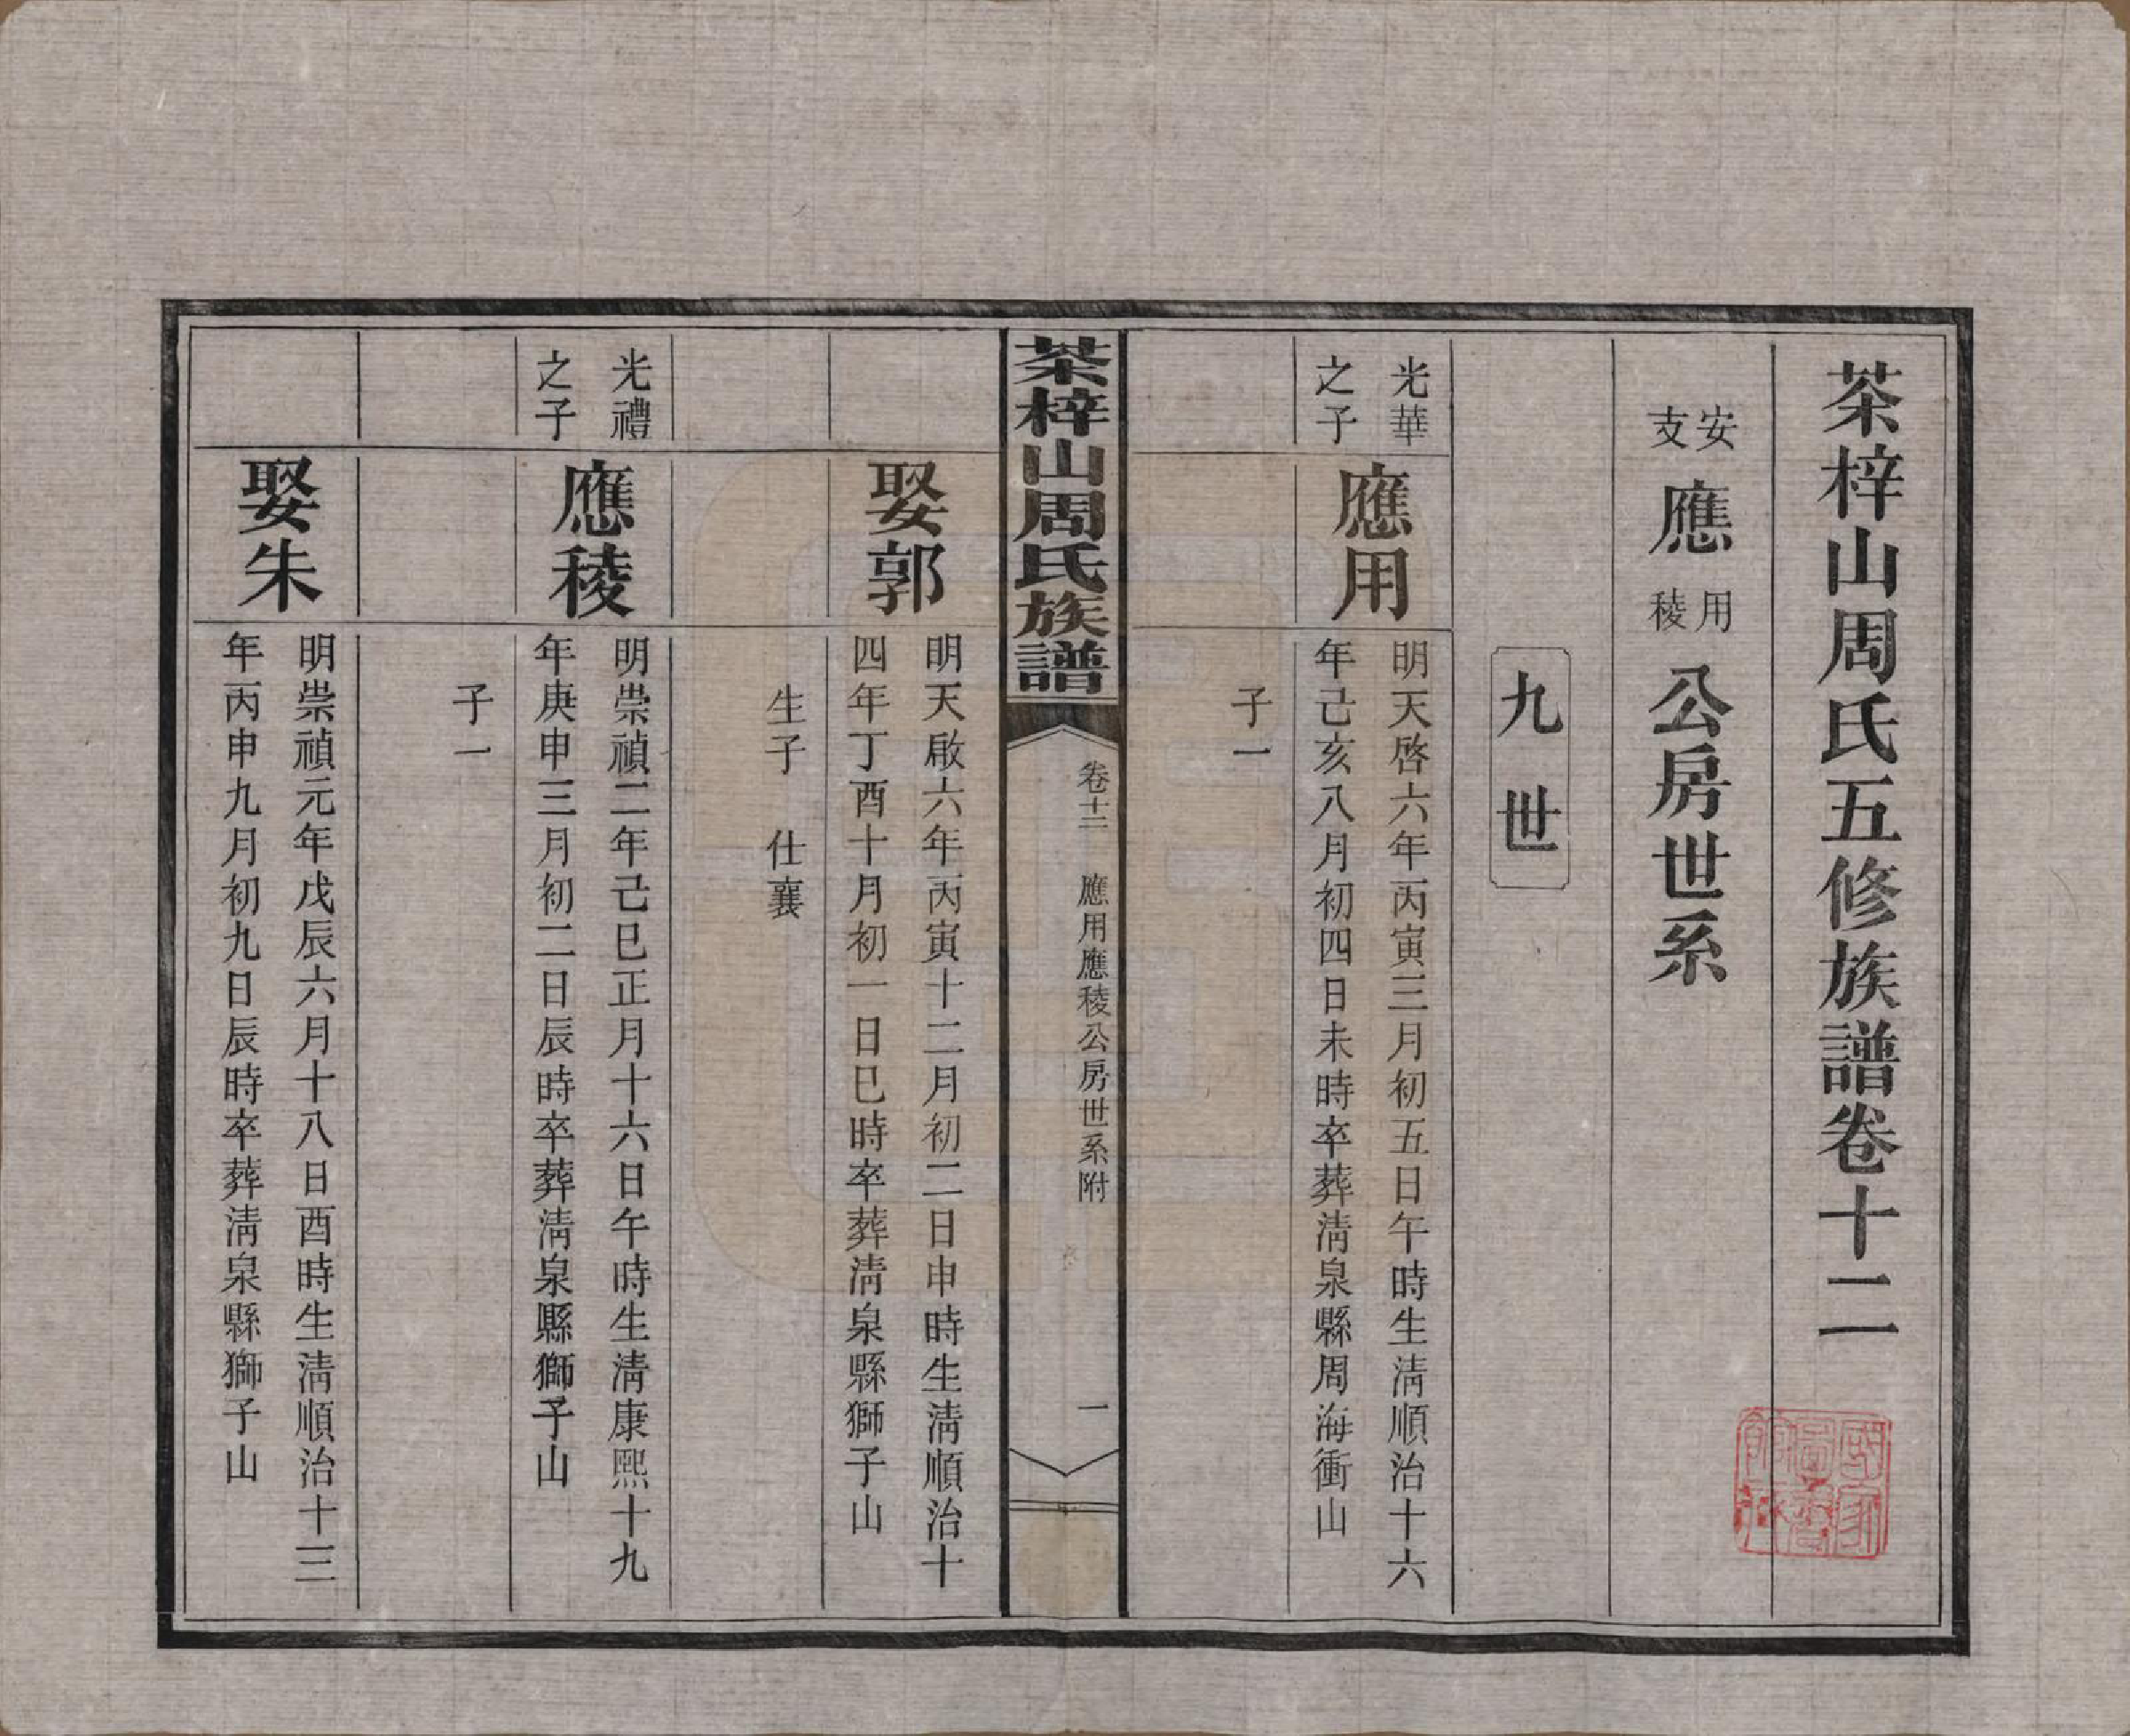 茶梓山周氏五修族譜卷十二
安支應用稜公房世系
九世
光華
之子
應用
明天啓六年丙寅三月初五日午時生淸順治十六
年己亥八月初四日未時卒葬淸泉縣周海衝山
子一
茶梓山周氏族譜
卷十二 應用應稜公房世系附
一
娶郭
明天啟六年丙寅十二月初二日申時生淸順治十
四年丁酉十月初一日巳時卒葬淸泉縣獅子山
生子 仕襄
光禮
之子
應稜
明崇禎二年己巳正月十六日午時生淸康熙十九
年庚申三月初二日辰時卒葬淸泉縣獅子山
子一
娶朱
明崇禎元年戊辰六月十八日酉時生淸順治十三
年丙申九月初九日辰時卒葬淸泉縣獅子山
國家圖書館藏